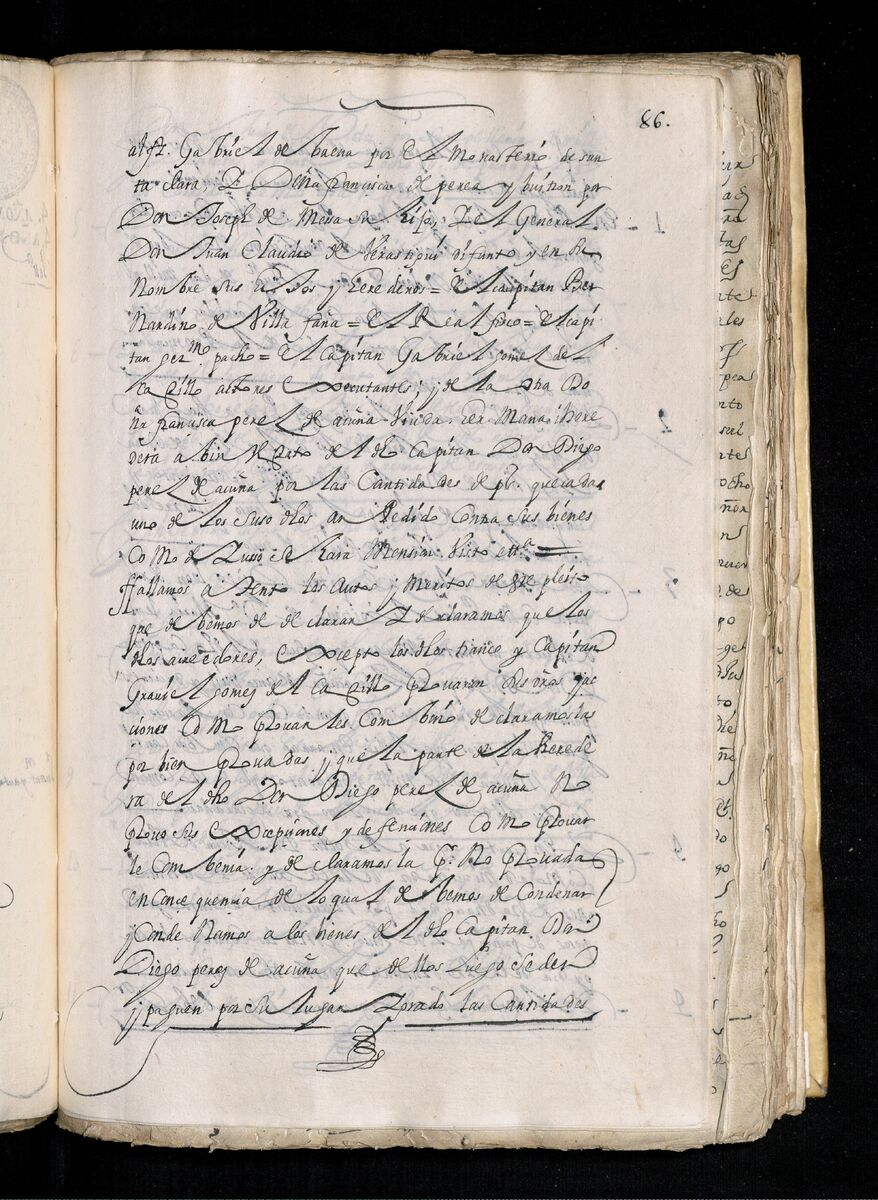 86.
al gt. Gabriel de baena por El Monasterio de san
ta clara, Z Doña francisca de perea y buitron por
Don Joseph de Mesa su hijo, Z el General
Don Juan Claudio de Verastigui difunto y en su
Nombre sus hijos y herederos = El capitan Ber
nardino de Villa faña = El Real fisco = El capi
tan germo pacho = El Capitan Gabriel gomez del
castillo actores Executantes; y de la otra Do
ña francisca perez de acuña Viuda. her mana i here
dera abin testato del dho Capitan Don Diego
perez de acuña por las Cantidades de ps. que cada
uno de los suso dhos an Pedido Contra sus bienes
Como de Zusso se hara Mension Visto etta =
ffallamos atento los Autos y Meritos deste pleito
que debemos de declarar Z declaramos que los
dhos acreedores, Excepto los dhos fiance y Capitan
Graviel gomez del Castillo provaron sus
ciones Como provarles Combino declaramoslas
por bien provadas, y que la parte de la herede
ra del dho Don Diego perez de acuña No
provo sus Excepciones y defenciones Como provar
le Combenia. y declaramosla pr. No provada
en conce quencia de lo qual debemos de Condenar
y Conde Namos a los bienes del dho Capitan Don
Diego perez de acuña que de llos Luego se den
y paguen por su lugar Z grado las Cantidades